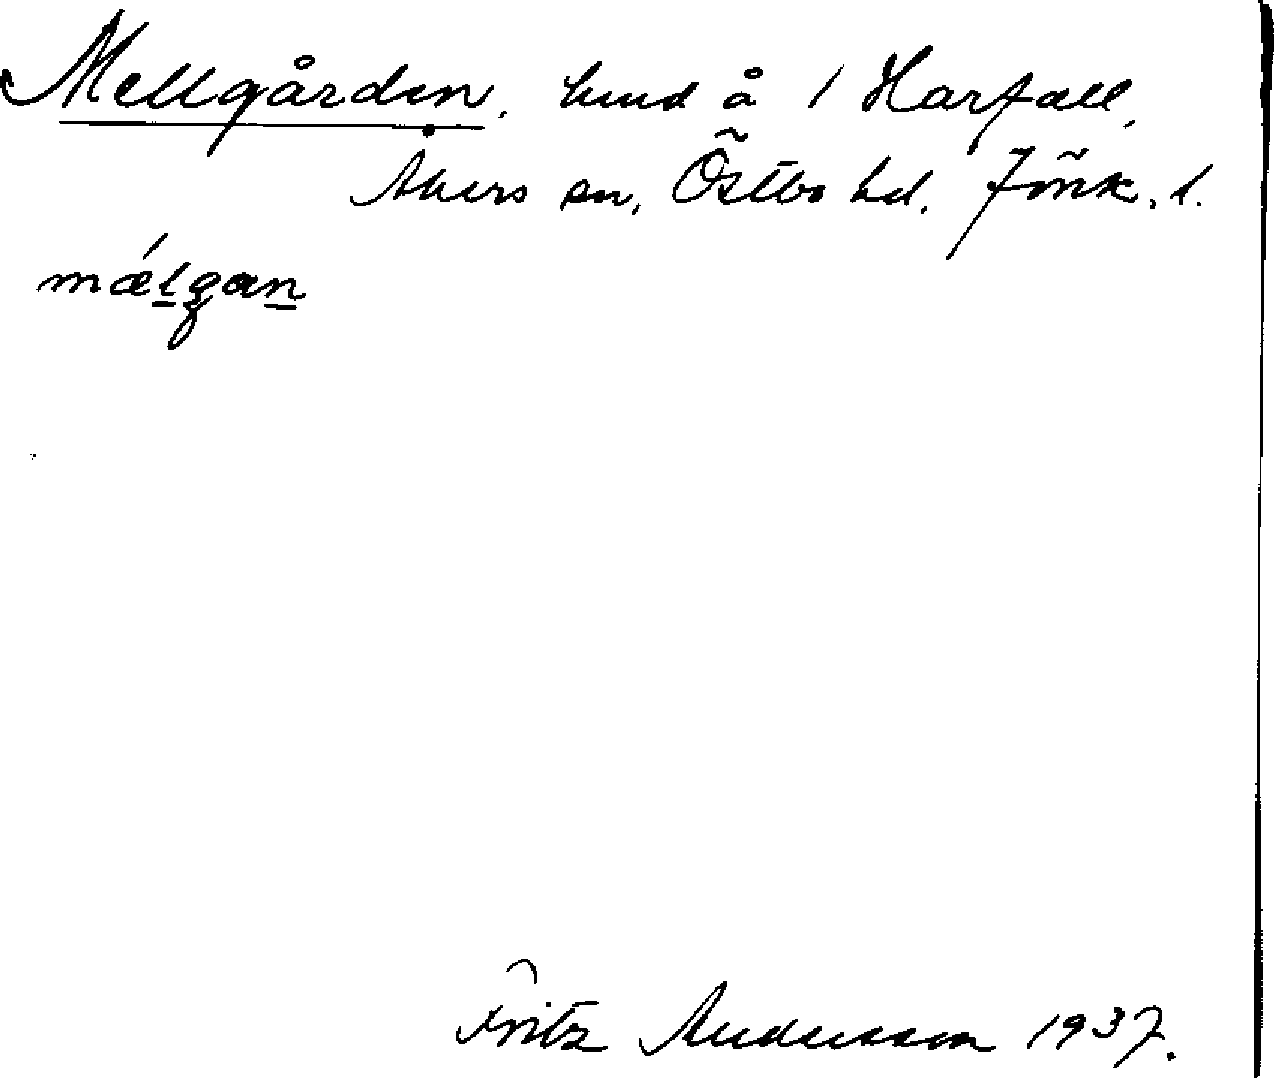 Mellgården, hmd å 1 Harfall,
Akers sn, Östbo hd. Jönk. l.
mǽlgan
Fritz Andersson 1937.